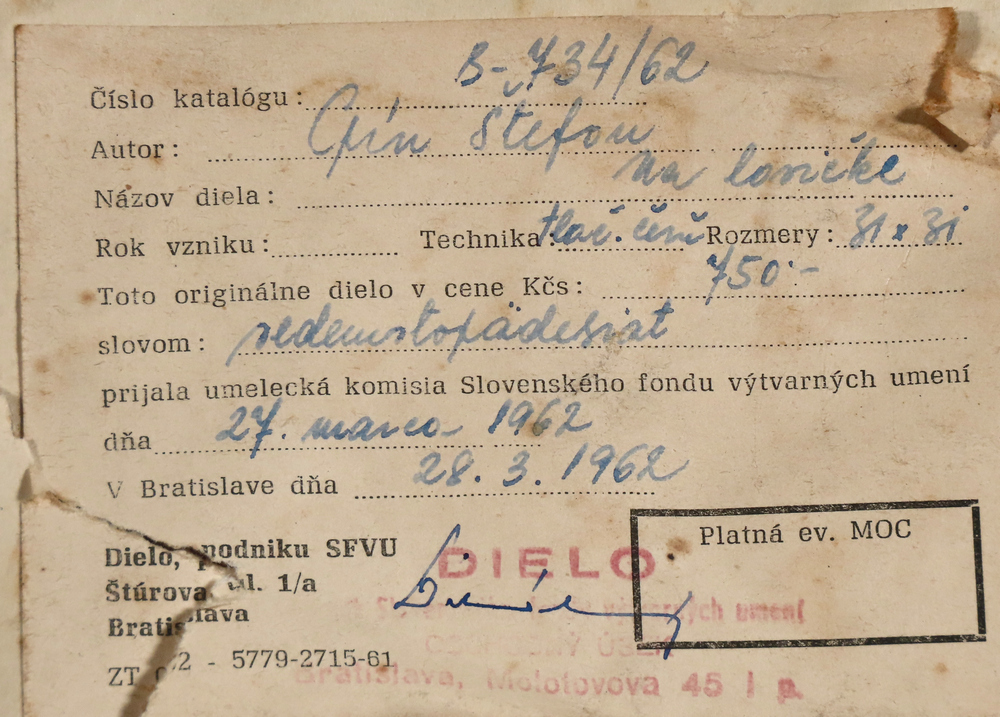 Číslo katalógu: B-734/62
Autor: Cpín Štefan
Názov diela: Na lavičke
Rok vzniku: Technika: tlač. Rozmery: 31 x 31
Toto originálne dielo v cene Kčs: 750.-
slovom: sedemstopädesiat
prijala umelecká komisia Slovenského fondu výtvarných umení
dňa 27. marca 1962
V Bratislave dňa 28. 3. 1962
Platná ev. MOC
Dielo, podniku SFVU
Štúrova ul. 1/a
Bratislava
ZT - 5779-2715-61
DIELO
výtvarných umení
Bratislava, Molotovova 45 I p.